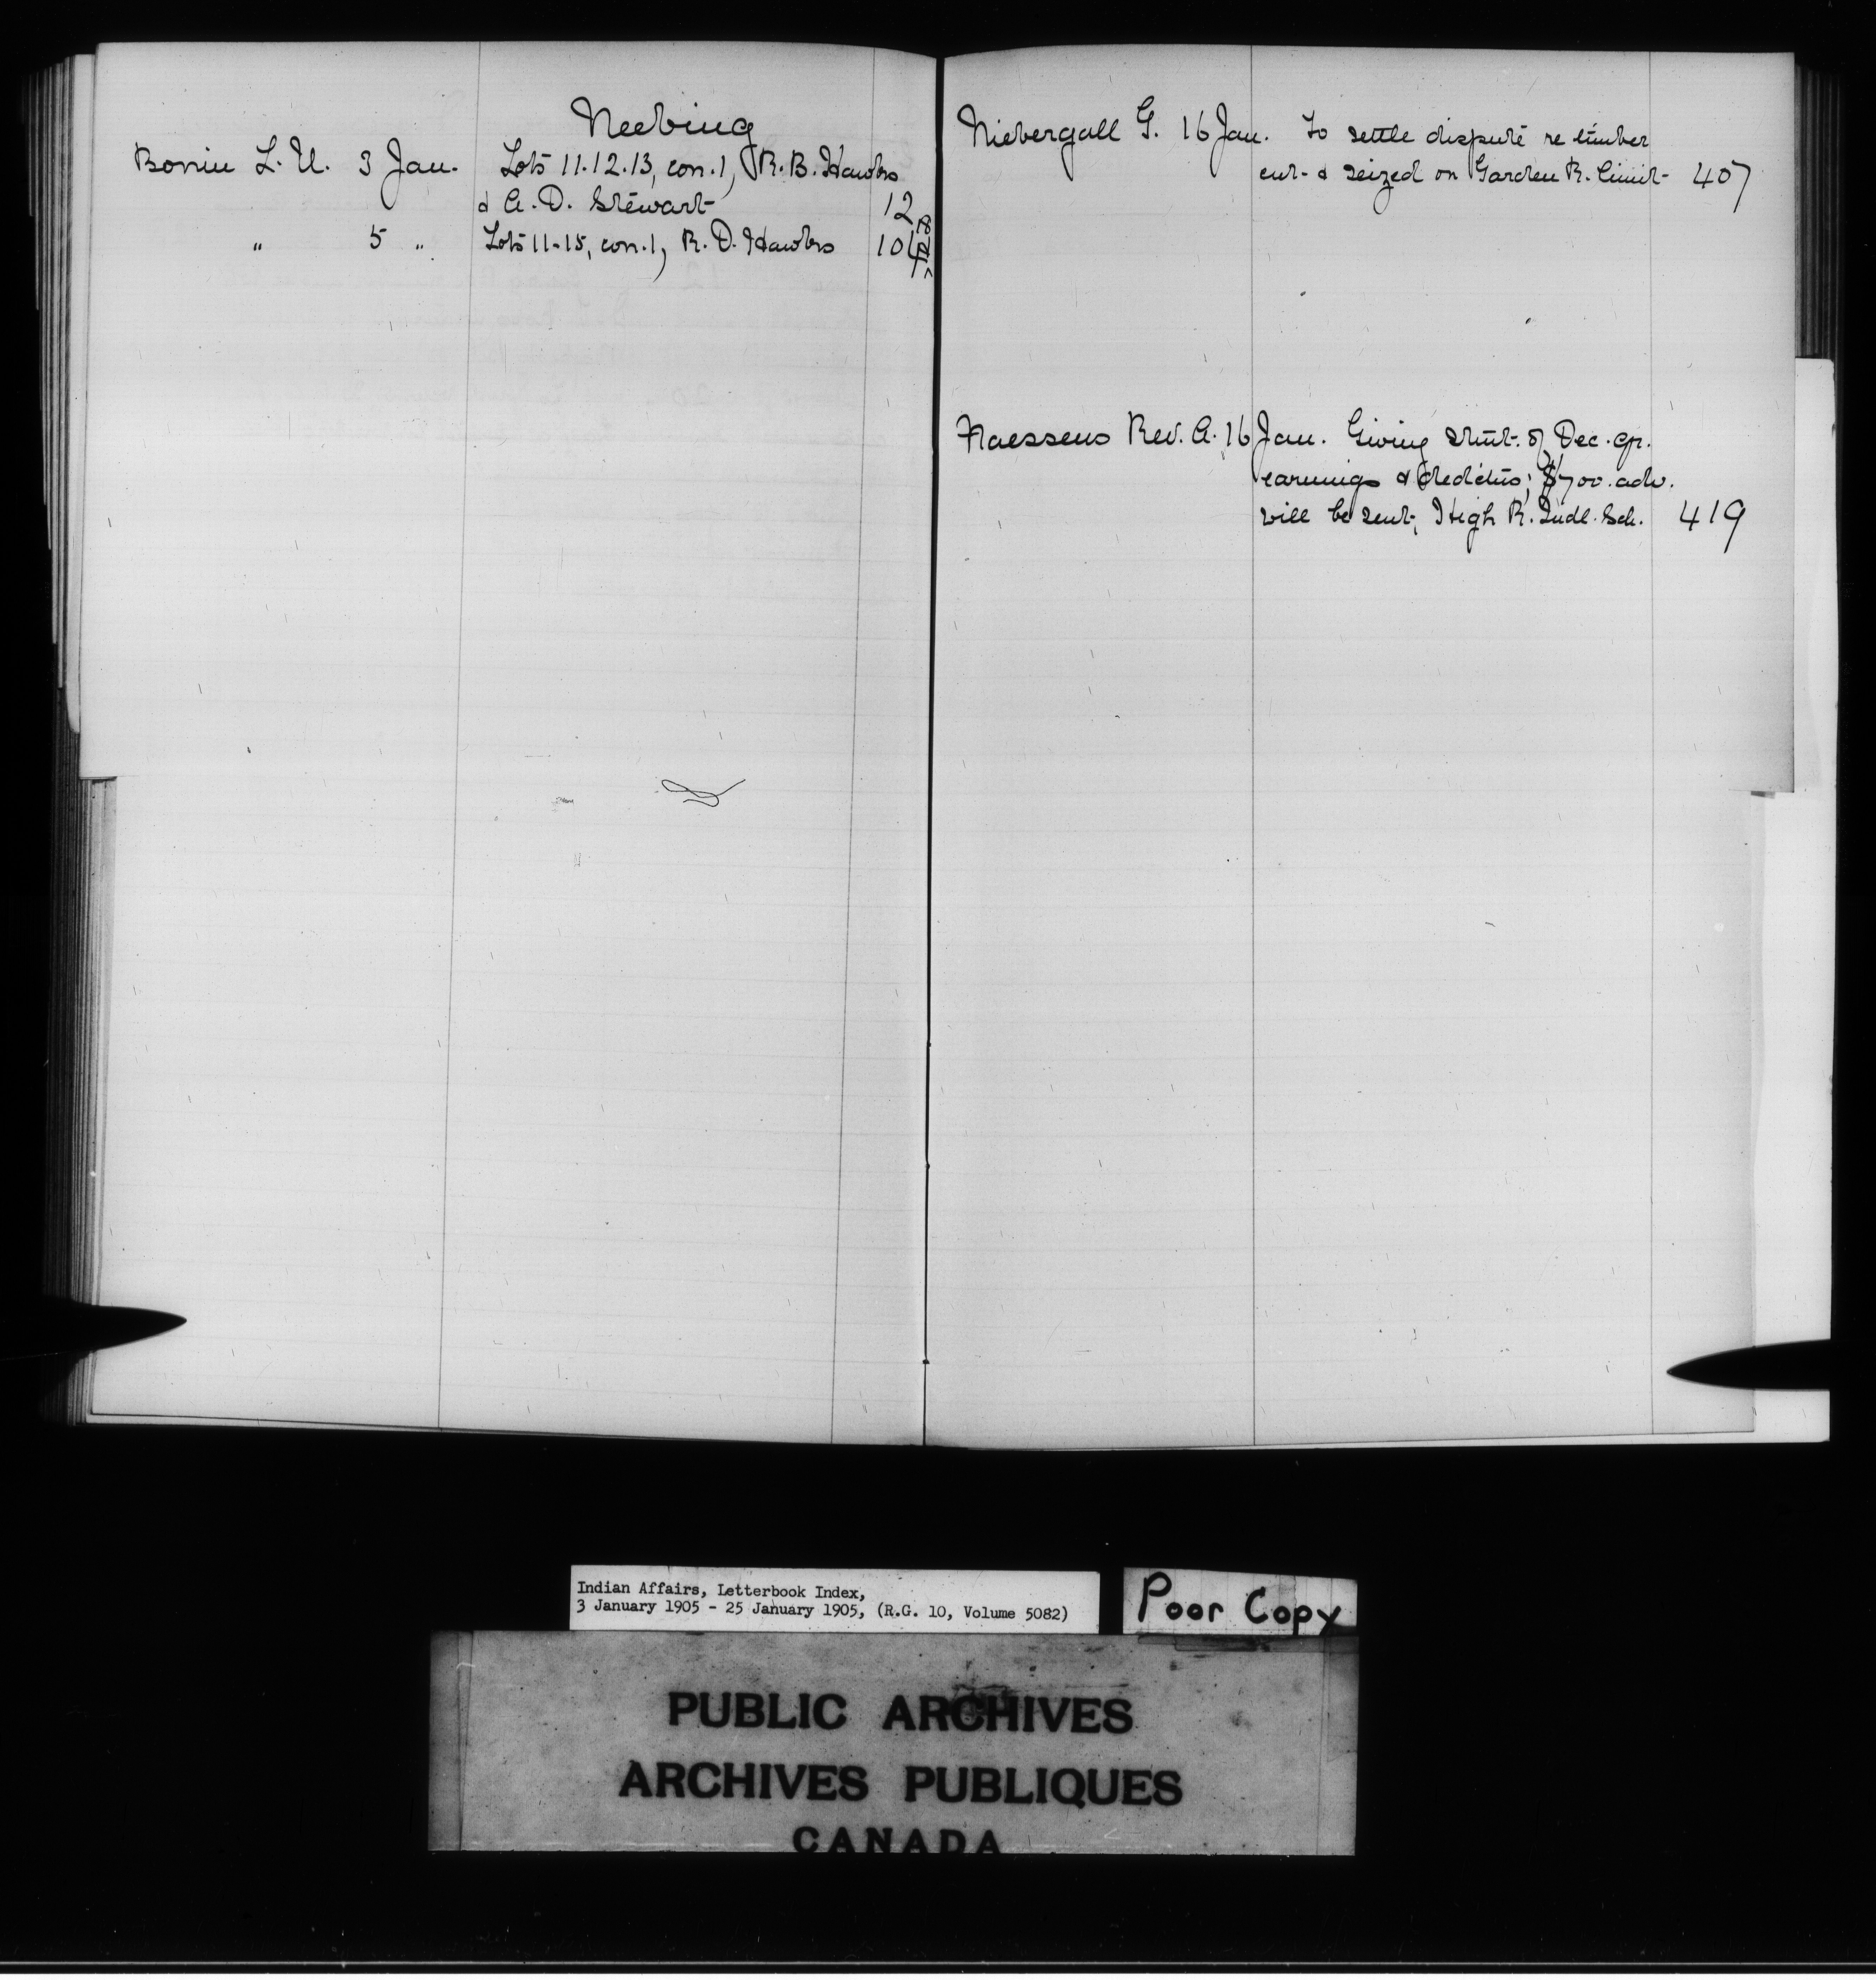 Neebing
Bonin L. U. 3 Jan. Lots 11.12.13, con.1, R.B. Hawks
& A. D. Stewart 12
" 5 " Lots 11-15, con.1, R. D. Hawks 104
Niebergall G. 16 Jan. To settle dispute re timber
cut & seized on Garden R. limit 407
Naessens Rev. A. 16 Jan. Giving stmt. of Dec. qr.
earnings & deduc'ns; $700. adv.
will be sent, High R. Indl. Sch. 419
Indian Affairs, Letterbook Index,
3 January 1905 - 25 January 1905, (R.G. 10, Volume 5082)
Poor Copy
PUBLIC ARCHIVES
ARCHIVES PUBLIQUES
CANADA